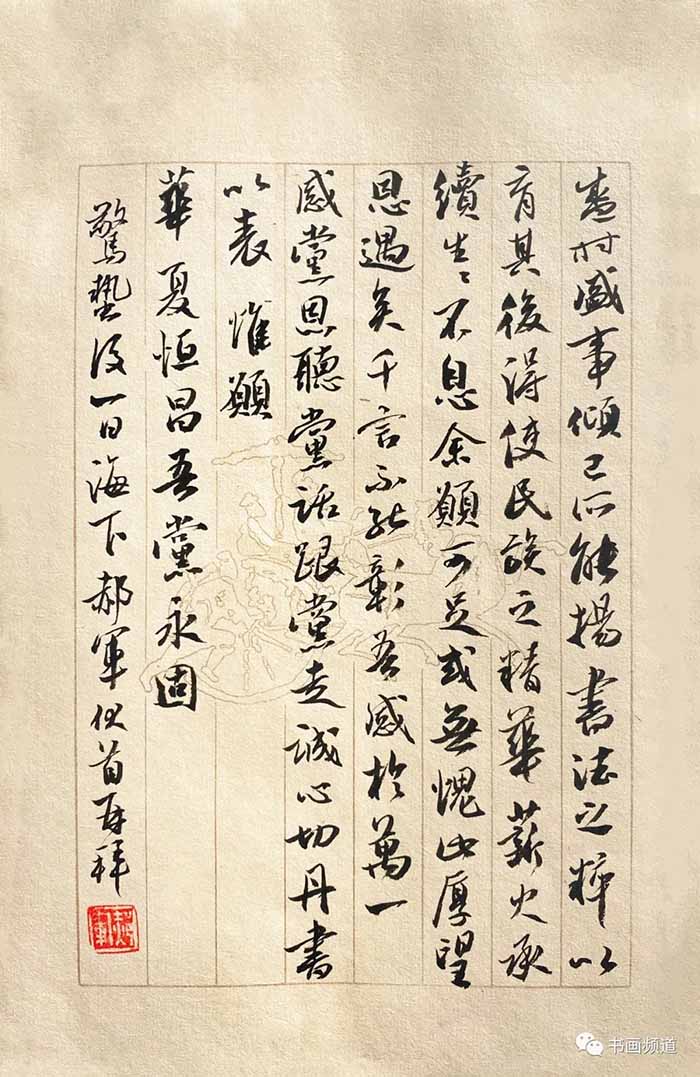 盡村盛事傾己所能揚書法之粹以
育其後得使民族之精華薪火承
續生生不息余願可足或無愧此厚望
恩遇矣千言不能彰吾感於萬一
感黨恩聽黨話跟黨走誠心切丹書
以表惟願
華夏恒昌吾黨永固
驚蟄後一日海下郝軍伏首再拜
郝軍
书画频道